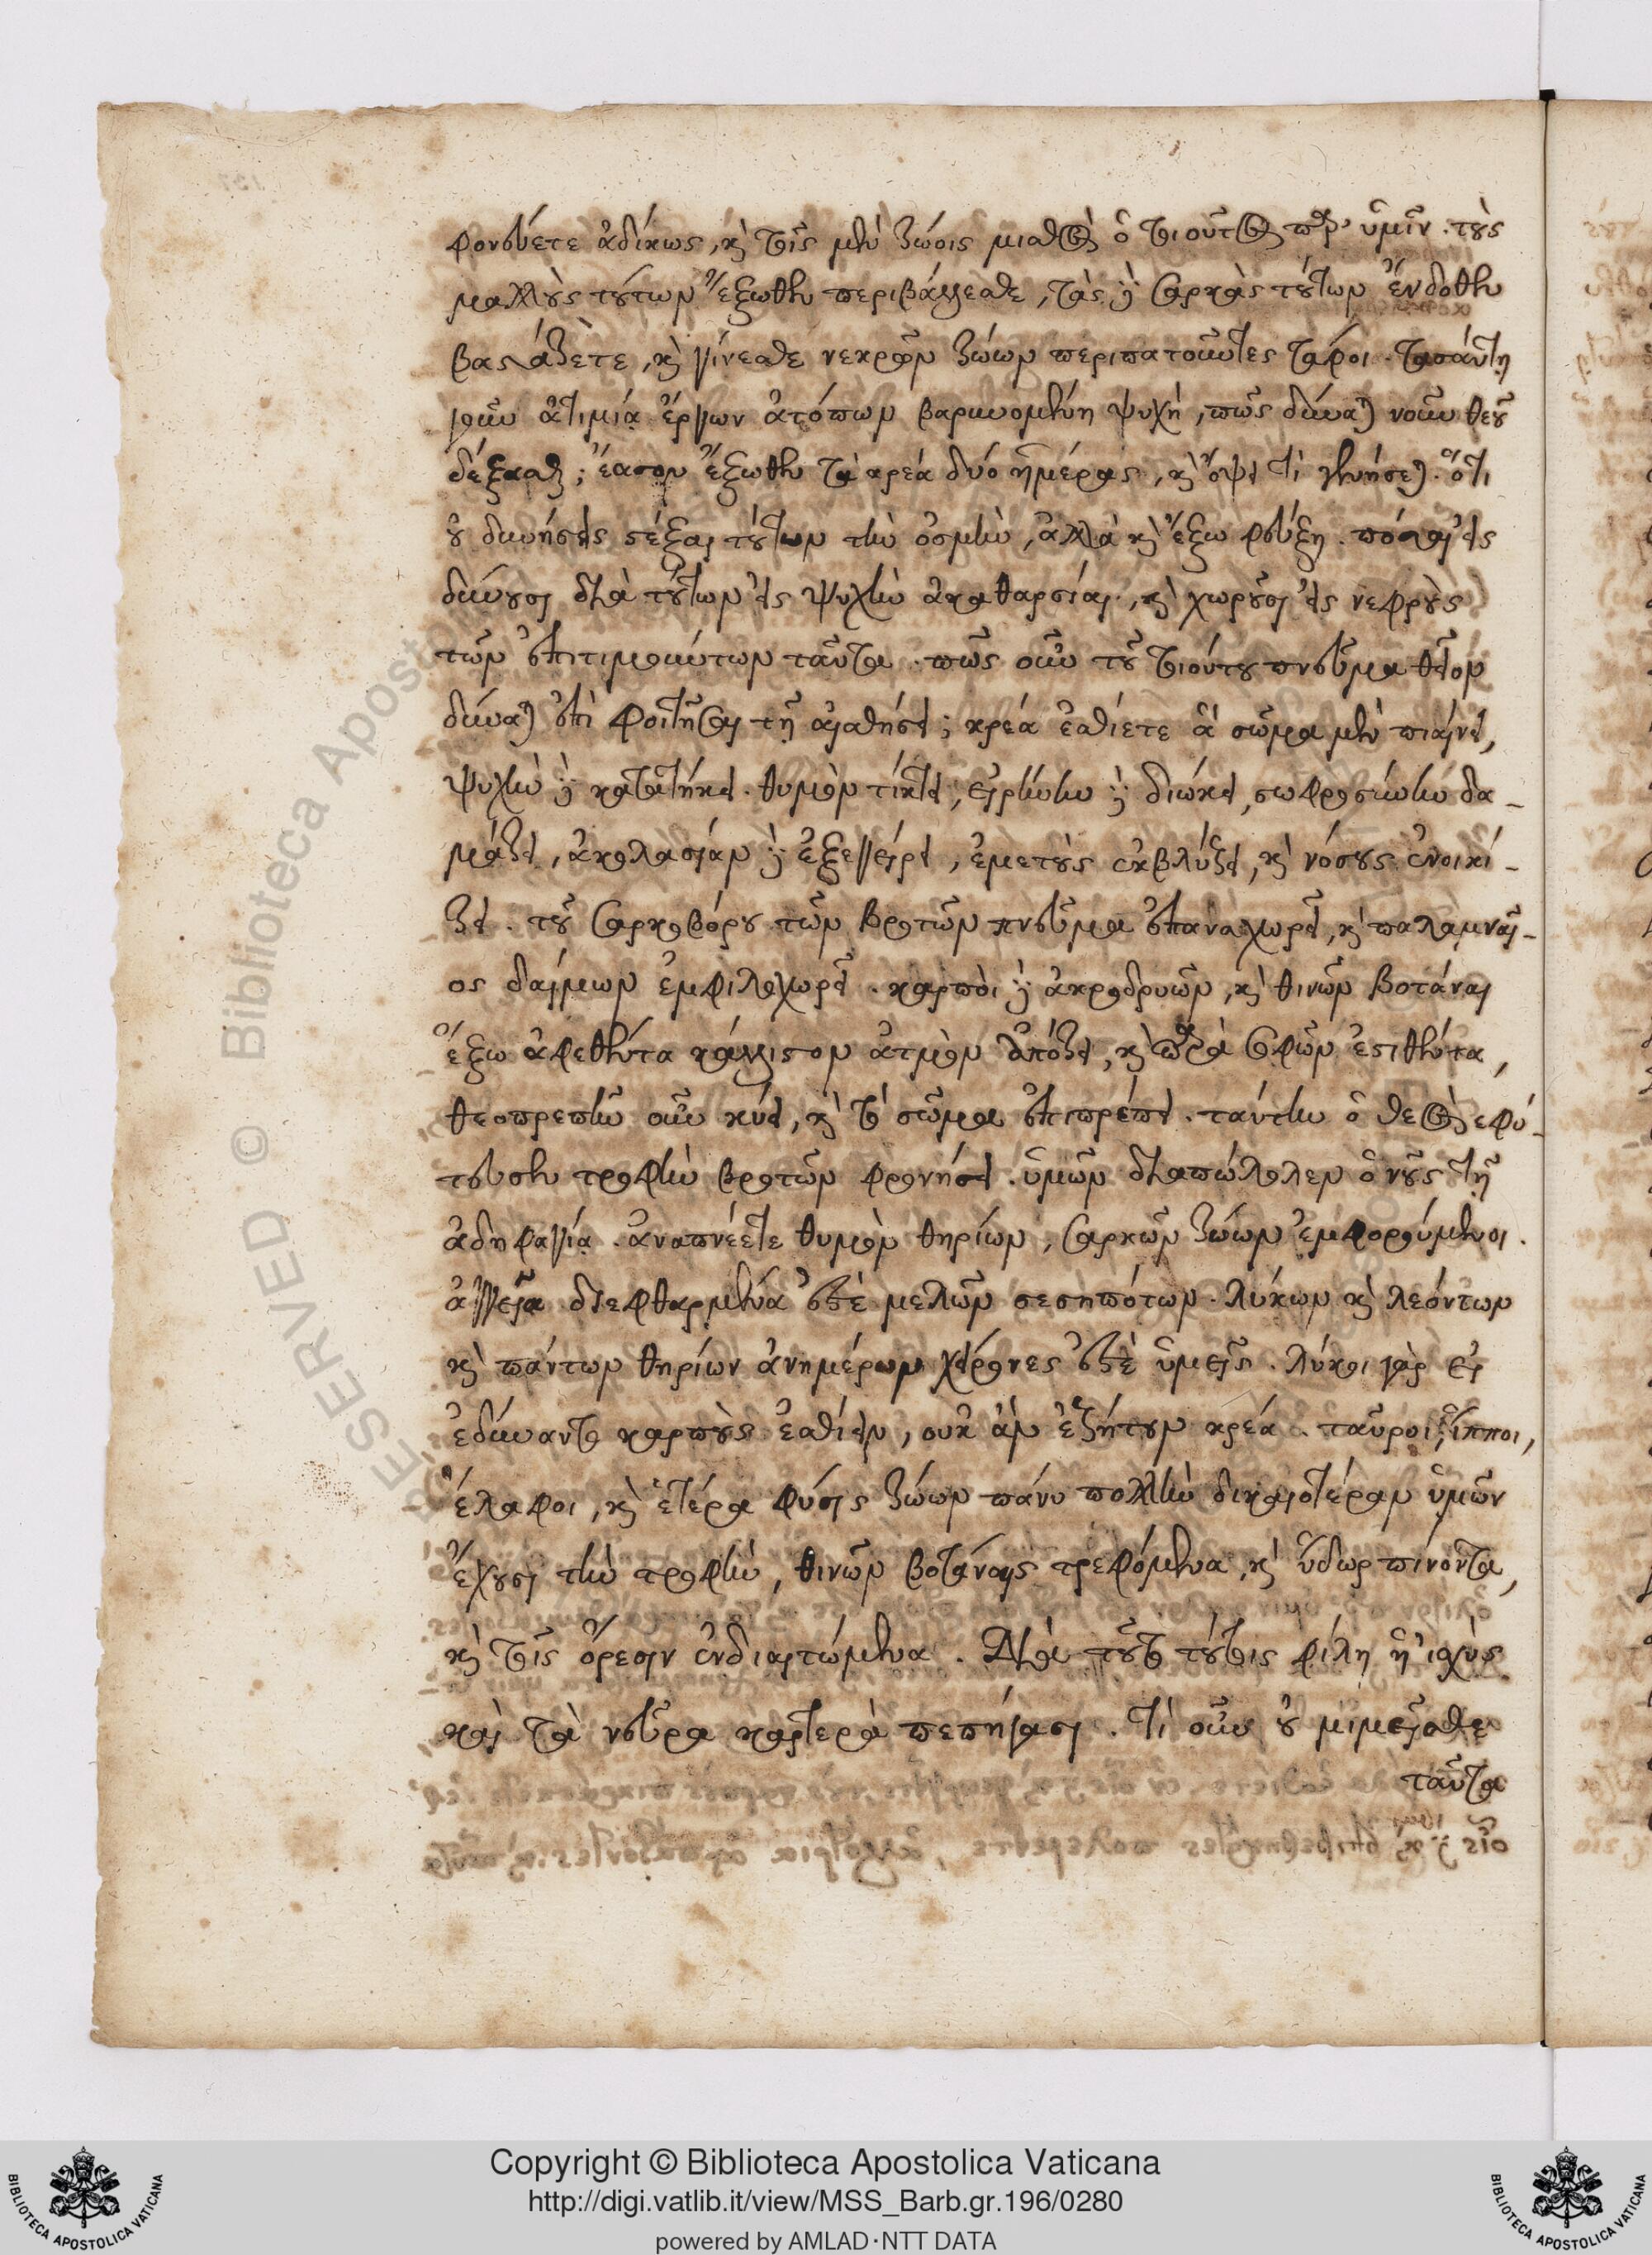 φονεύετε ἀδίκως, καὶ τοῖς μὲν ζώοις μισθὸς ὁ τοιοῦτος παρ' ὑμῖν. τοὺς
μαλλοὺς τούτων ἔξωθεν περιβάλλεσθε, τὰς δὲ σάρκας τούτων ἔνδοθεν
βαστάζετε, καὶ γίνεσθε νεκρῶν ζώων περιπατοῦντες τάφοι. τοσαύτῃ
γοῦν ἀτιμίᾳ ἔργων ἀτόπων βαρυνομένη ψυχὴ, πῶς δύναται νοῦν θεοῦ
δέξασθαι; ἔασον ἔξωθεν τὰ κρέα δύο ἡμέρας, καὶ ὄψει τί γεννήσεται. ὅτι
οὐ δυνήσεις στέξαι τούτων τὴν ὀσμὴν, ἀλλὰ καὶ ἔξω φεύξῃ. πόσαι εἰς
δύνουσι διὰ τούτων εἰς ψυχὴν ἀκαθαρσίαι, καὶ χωροῦσι εἰς νεφροὺς
τῶν ἐπιτιμούντων ταῦτα. πῶς οὖν τοῦ τοιούτου πνεῦμα θεῖον
δύναται ἐπὶ φοιτῆσαι τῇ αἰσθήσει; κρέα ἐσθίετε ἃ σῶμα μὲν πιαίνει,
ψυχὴν δὲ κατατήκει. θυμὸν τίκτει, εἰρήνην δὲ διώκει, σωφροσύνην δα-
μάζει, ἀκολασίαν δὲ ἐξεγείρει, ἐμετοὺς ἐκβλύζει, καὶ νόσους ἐνοικί-
ζει. τοῦ σαρκοβόρου τῶν βροτῶν πνεῦμα ἐπαναχωρεῖ, καὶ παλαμναῖ-
ος δαίμων ἐμφιλοχωρεῖ. καρποὶ δὲ ἀκροδρυῶν, καὶ θινῶν βοτάναι
ἔξω ἀφεθέντα κάλλιστον ἀτμὸν ἀπόζει, καὶ παρὰ σοφῶν ἐσιθέντα,
θεοπρεπῆ οὖν κύει, καὶ τὸ σῶμα ἐπιπρέπει. ταύτην ὁ θεὸς ἐφύ-
τευσεν τροφὴν βροτῶν φρονήσει. ὑμῶν διαπώλολεν ὁ νοῦς τῇ
ἀδηφαγίᾳ. ἀναπνέετε θυμὸν θηρίων, σαρκῶν ζώων ἐμφορούμενοι.
ἀγγεῖα διεφθαρμένα ἐστὲ μελῶν σεσηπότων. λύκων καὶ λεόντων
καὶ πάντων θηρίων ἀνημέρων χείρονες ἐστὲ ὑμεῖς. λύκοι γὰρ εἰ
ἐδύναντο καρποὺς ἐσθίειν, οὐκ ἀν ἐζήτουν κρέα. ταῦροι, ἵπποι,
ἔλαφοι, καὶ ἑτέρα φύσις ζώων πάνυ πολλὴν δικαιοτέραν ὑμῶν
ἔχουσι τὴν τροφὴν, θινῶν βοτάναις τρεφόμενα, καὶ ὕδωρ πίνοντα,
καὶ τοῖς ὄρεσιν ἐνδιαιτώμενα. διὰ τοῦτο τούτοις φίλη ἡ ἰσχὺς
καὶ τὰ νεῦρα καρτερὰ πεπήγασι. τί οὖν οὐ μιμεῖσθε
ταῦτα
RESERVED © Biblioteca Apostolica
Copyright © Biblioteca Apostolica Vaticana
http://digi.vatlib.it/view/MSS_Barb.gr.196/0280
powered by AMLAD·NTT DATA
BIBLIOTECA APOSTOLICA VATICANA
BIBLIOTECA APOSTOLICA VATICANA